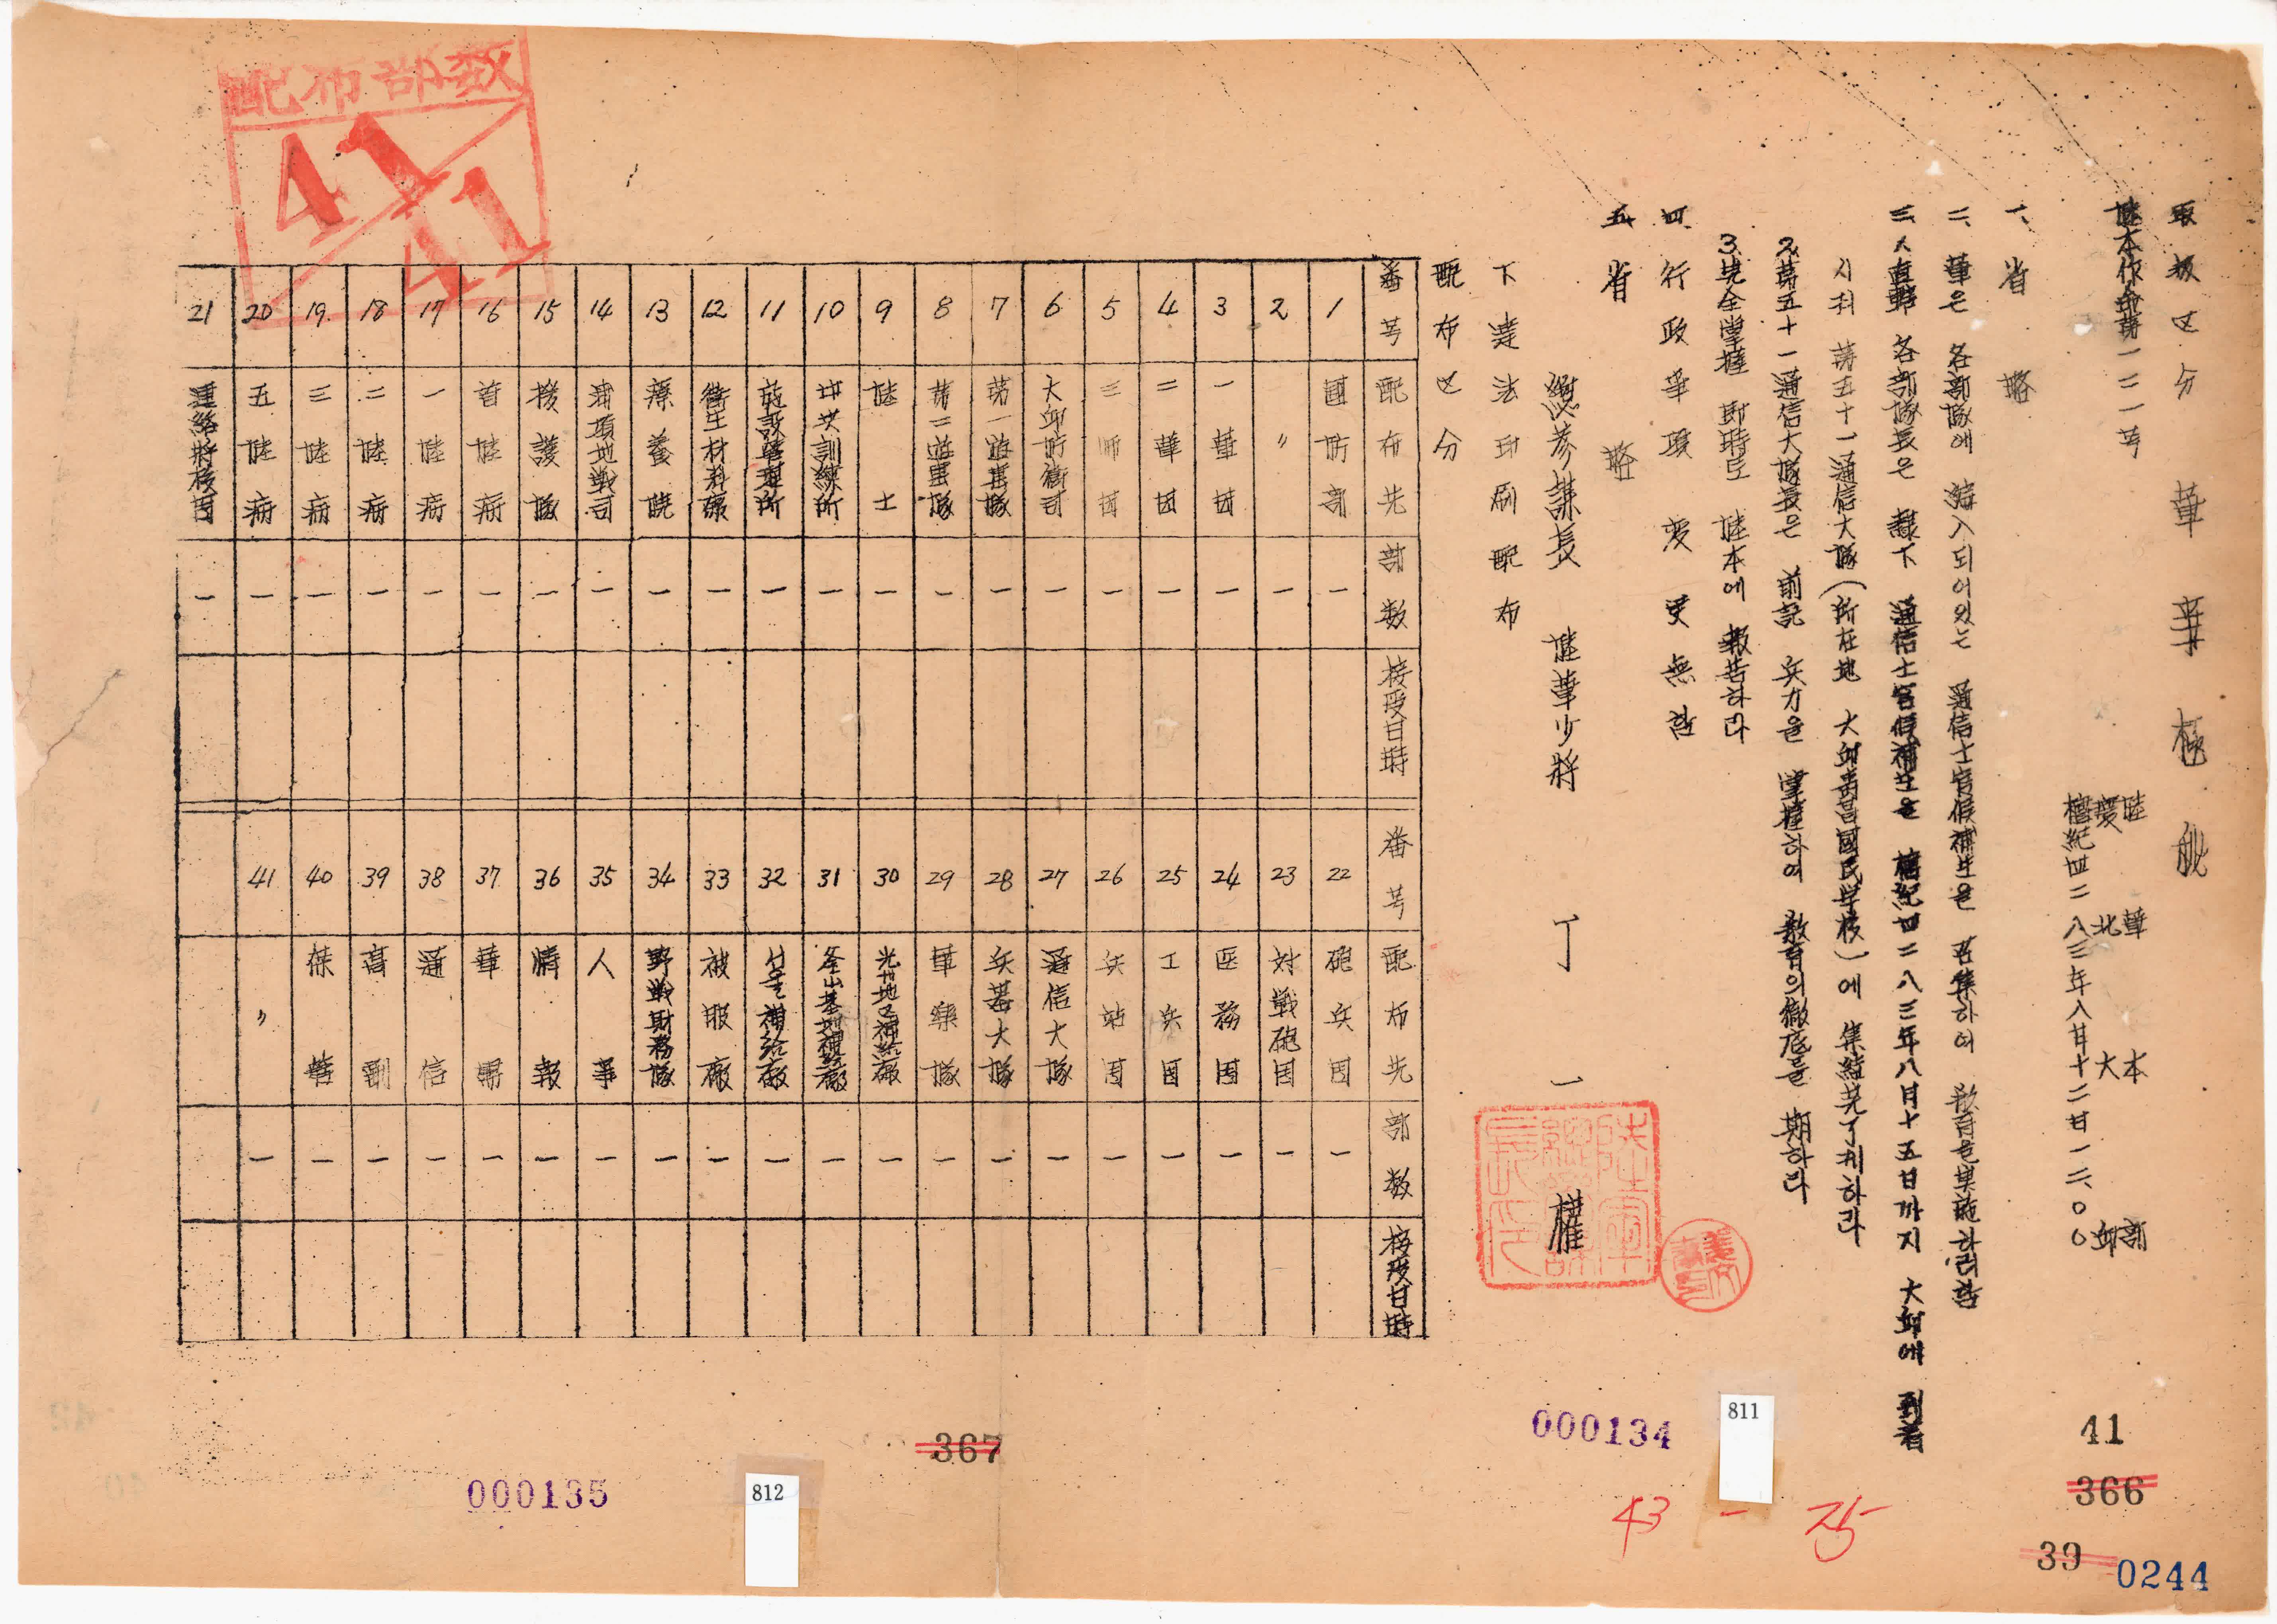 取扱区分 軍事極秘
陸本作命第一二一号
陸軍本部
慶北大邱
檀紀四二八三年八月十二日一二、〇〇
一、省略
二、軍은 各部隊에 編入되어있는 通信士官候補生을 召集하여 敎育을 実施하려함
三、1 直轄 各部隊長은 隷下 通信士官候補生을 檀紀四二八三年八月十五日까지 大邱에 到着
시켜 第五十一通信大隊(所在地 大邱壽昌國民学校)에 集結完了케하라
2 第五十一通信大隊長은 前記 兵力을 掌握하여 敎育의 徹底를 期하라
3 完全掌握 即時로 陸本에 報告하라
四、行政事項 変更無함
五、省略
總参謀長 陸軍少將 丁一權
下達法 印刷配布
配布区分
番号 配布先 部数 接受日時
1 國防部 一
2 〃 一
3 一軍団 一
4 二軍団 一
5 三師団 一
6 大邱防衛司 一
7 第一遊擊隊 一
8 第二遊擊隊 一
9 陸士 一
10 中央訓練所 一
11 施設管理所 一
12 衛生材料廠 一
13 療養院 一
14 浦項地戦司 一
15 援護隊 一
16 首陸病 一
17 一陸病 一
18 二陸病 一
19 三陸病 一
20 五陸病 一
21 連絡將校団 一
番号 配布先 部数 接受日時
22 砲兵団 一
23 対戦砲団 一
24 医務団 一
25 工兵団 一
26 兵站団 一
27 通信大隊 一
28 兵基大隊 一
29 軍樂隊 一
30 光州地区補給廠 一
31 釜山基地補給廠 一
32 서울補給廠 一
33 被服廠 一
34 野戦財務隊 一
35 人事 一
36 情報 一
37 軍需 一
38 通信 一
39 高副 一
40 作 一
41 〃 一
配布部数
41
41
陸軍總参謀長印
000134
811
41
366
367
000135
812
43 - 75
39
0244